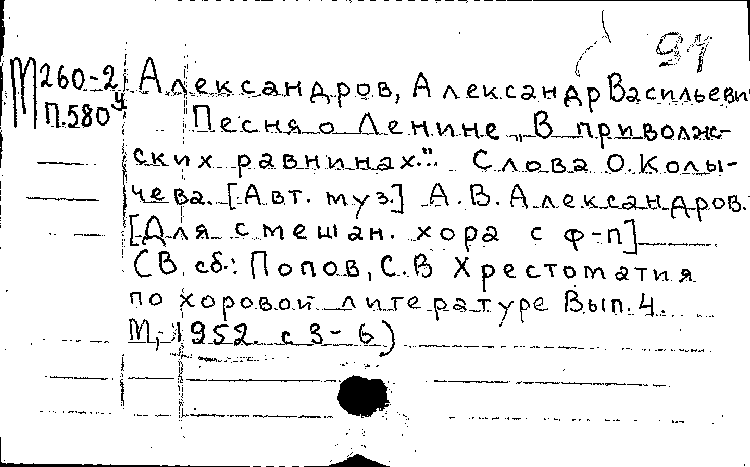 91
М260-2 Александров, Александр Васильевич
П.580ч Песня о Ленине „В приволж-
ских равнинах." Слова О. Колы-
чева. [Авт. муз.] А.В. Александров.
[Для смешан. хора с ф-п]
(В сб.: Попов, С.В Хрестоматия
по хоровой литературе Вып. 4.
М., 1952. с 3-6)